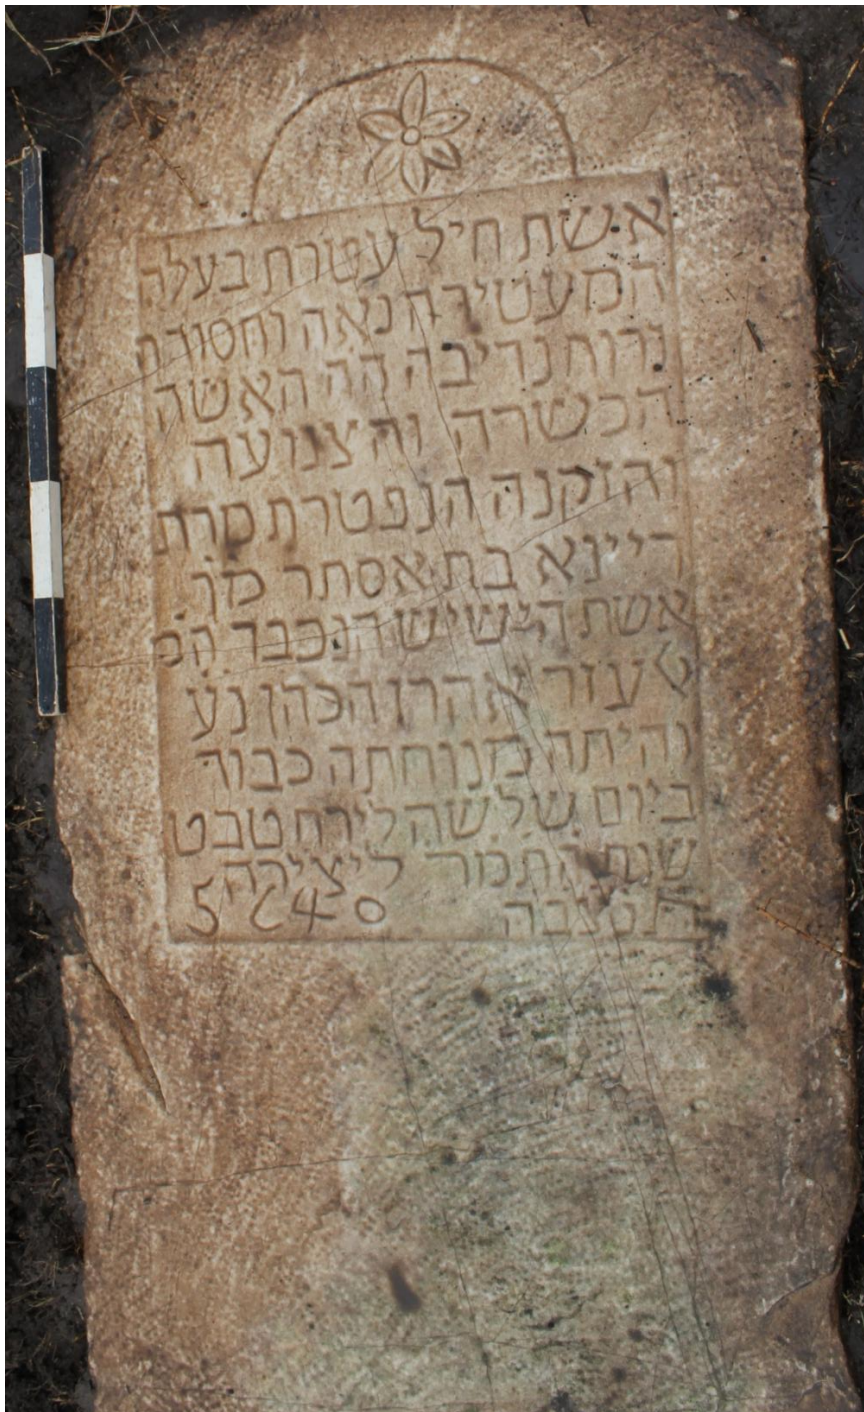 אשת חיל עטרת בעלה
המעטירה נאה וחסודה
ורוח נדיבה הה האשה
הכשרה והצנועה
והזקנה הנפטרת מרת
ריינא בת אסתר מ֗ך֗
אשת הישיש הנכבד המ
עזר אהרן הכהן נ֗ע֗
והיתה מנוחתה כבוד
ביום שלשה לירח טבט
שנת התמר ליצירה
תנצבה 5640